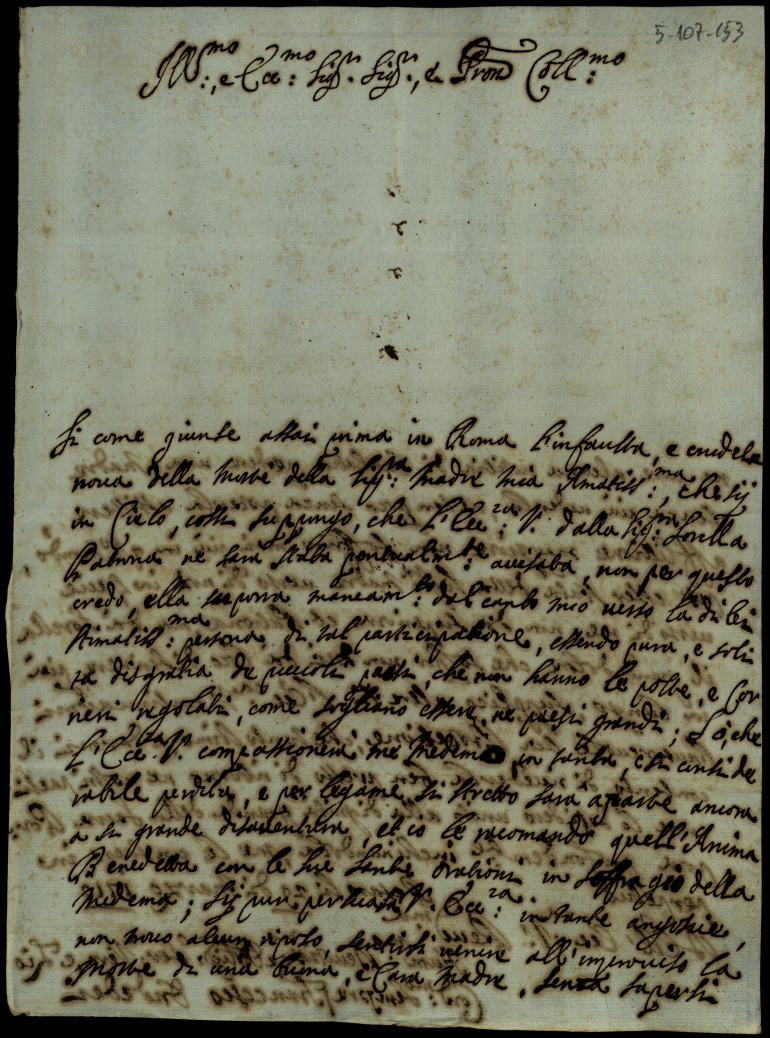 5-107-153
Ill:mo, e Ecc:mo Sigr. Sigr., e Pron Coll:mo
Si come giunse assai prima in Roma l'infausta, e crudele
nova della morte della Sig:ra Madre mia Amatiss:ma, che sij
in Cielo, cossi supongo, che l'Ecc:za V. dalla Sig:ra Sorella
Padrona ne sarà stata pontualm:te avisata, non per questo
credo, ella suporrà mancam:to dal canto mio verso la di lei
Stimatiss:ma persona di tal participatione, essendo pura, e soli
ta disgratia de piccioli paesi, che non hanno le poste, e Cor
rieri regolati, come sogliano essere ne paesi grandi; Sò, che
l'Ecc:za V. compassionerà me medemo in tanta, e si considè
rabile perdita, e per legame si stretto sarà a parte ancora
à si grande disaventura, et io le racomando quell'Anima
Benedetta con le sue Sante Orationi in soffragio della
medema; Sij pur persuasa V. Ecc:za in tante angostie,
non trovo alcun riposo, sentirsi venire all'improviso la
Morte di una buona, e Cara Madre, senza sapersi